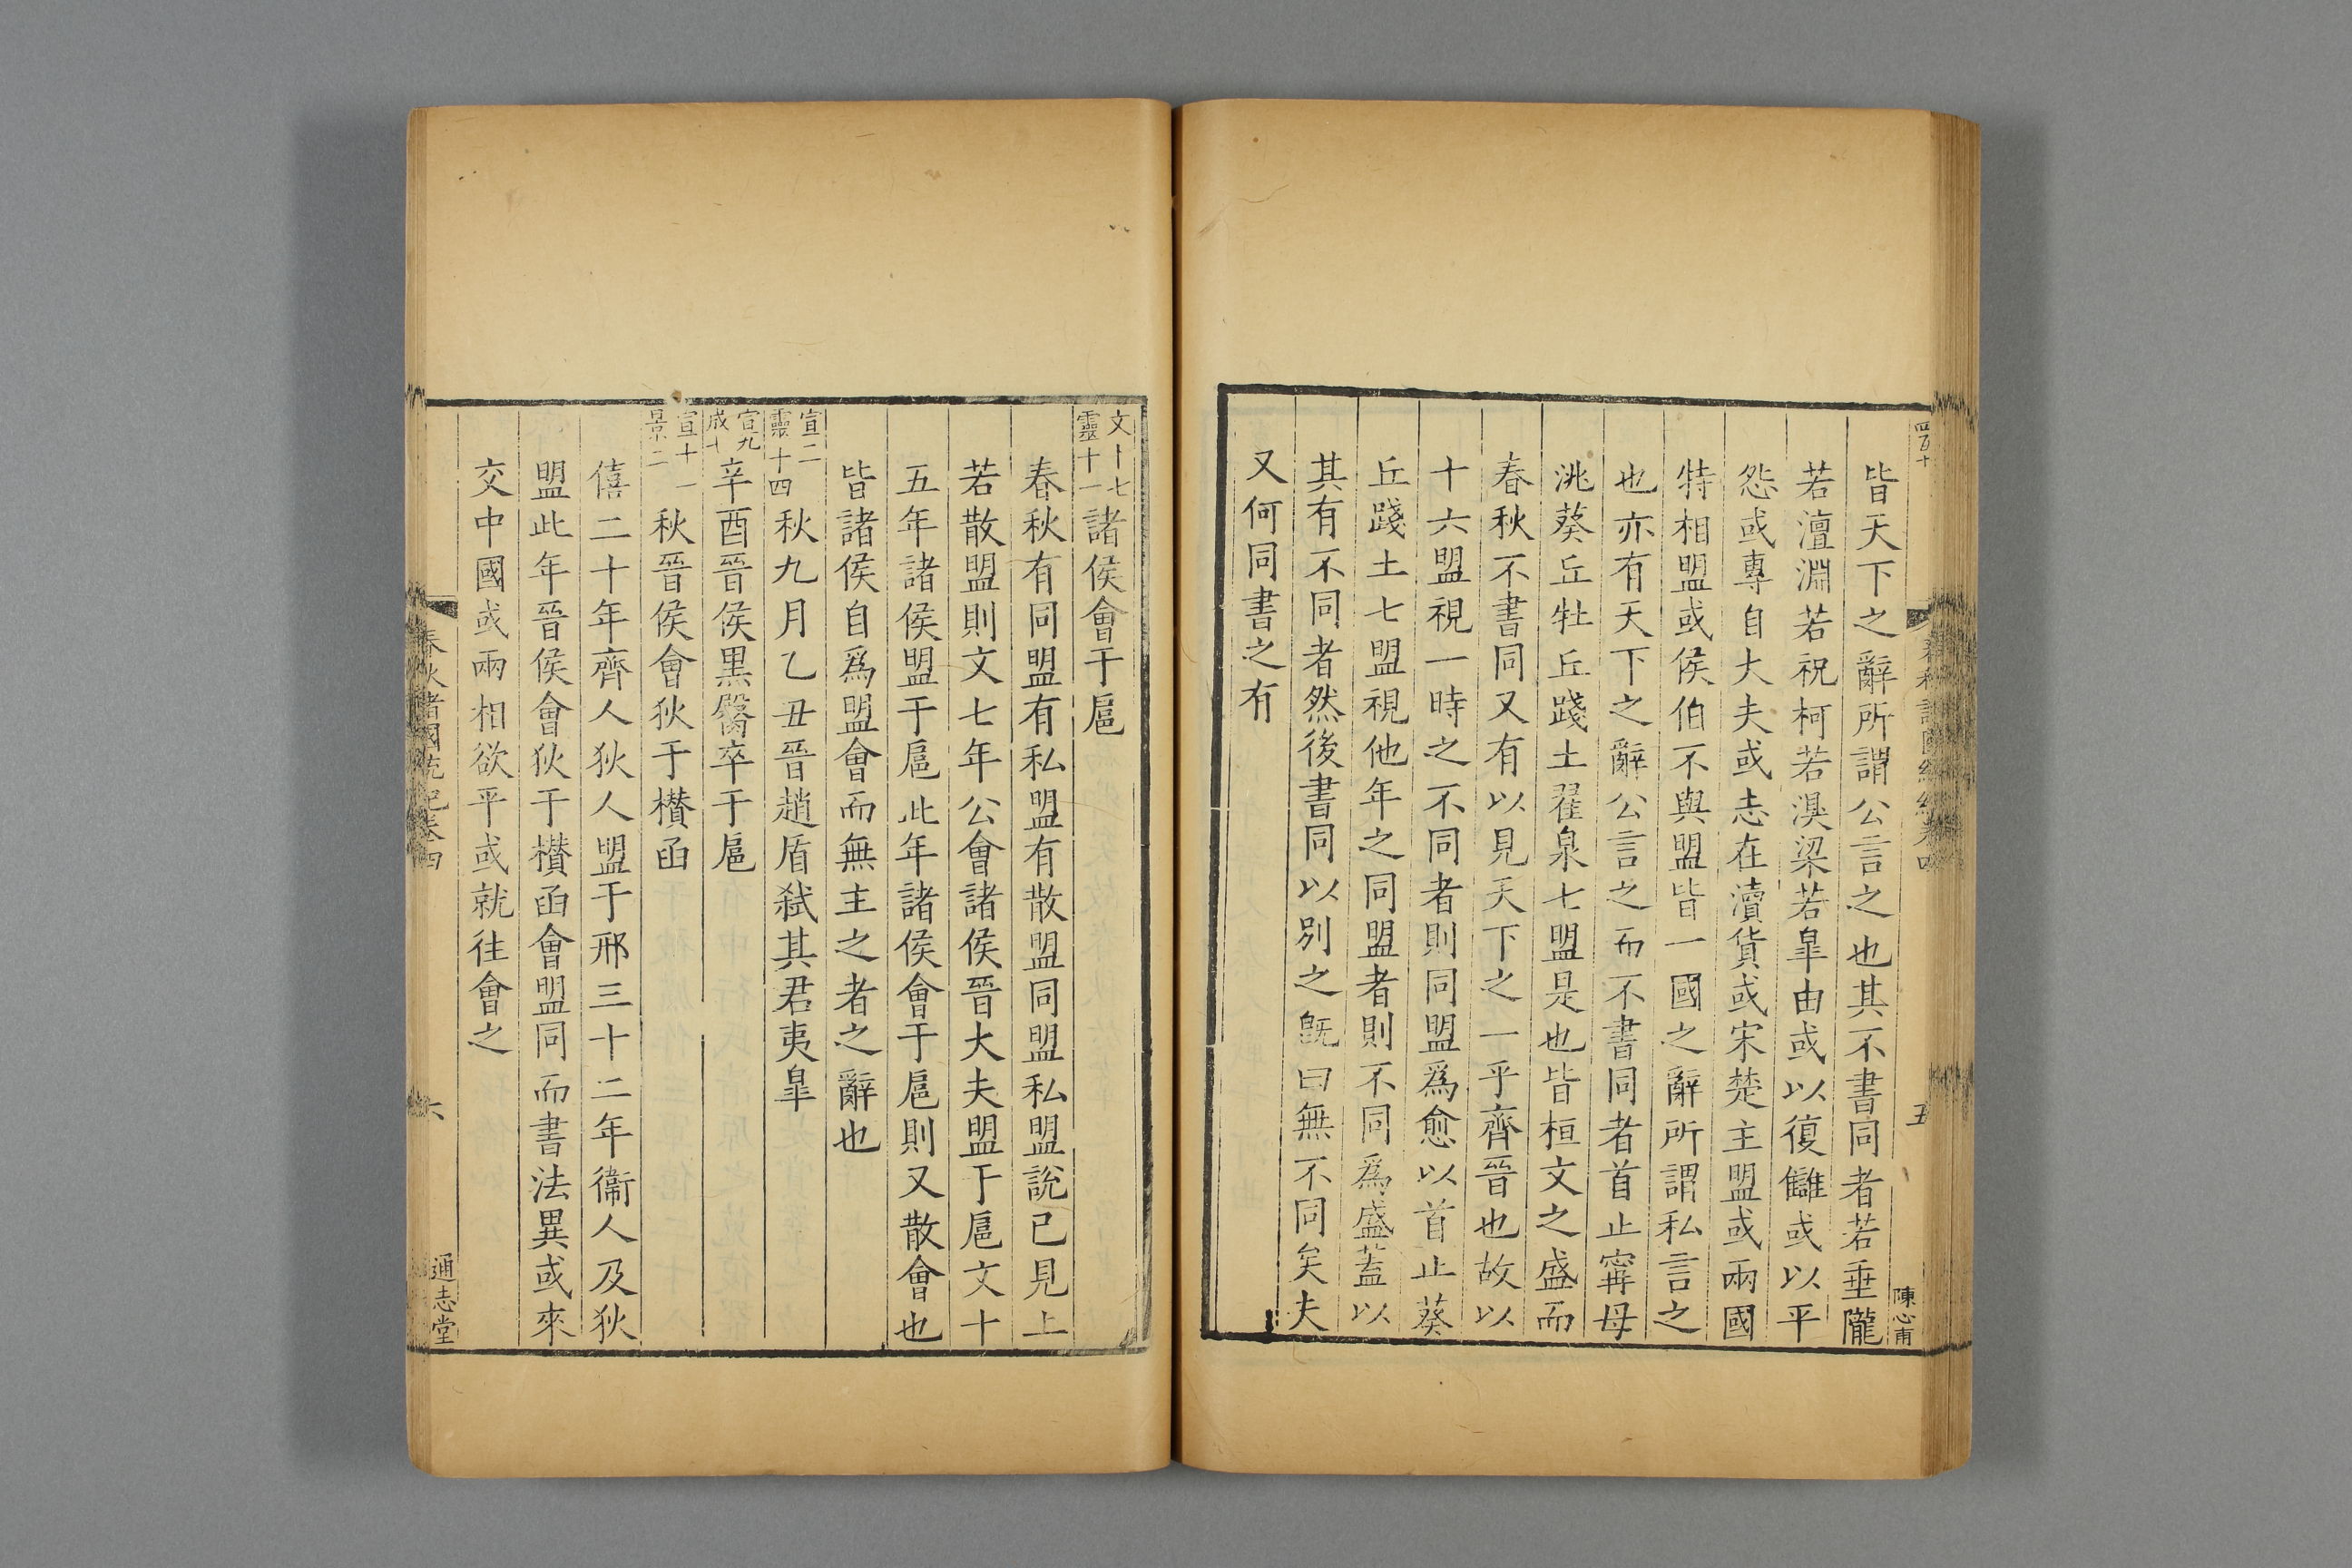 四百十
春秋諸國統紀卷四
五
陳心甫
皆天下之辭所謂公言之也其不書同者若垂隴
若澶淵若祝柯若溴梁若皐由或以復讎或以平
怨或專自大夫或志在瀆貨或宋楚主盟或兩國
特相盟或侯伯不與盟皆一國之辭所謂私言之
也亦有天下之辭公言之而不書同者首止甯母
洮葵丘牡丘踐土翟泉七盟是也皆桓文之盛而
春秋不書同又有以見天下之一乎齊晉也故以
十六盟視一時之不同者則同盟爲愈以首止葵
丘踐土七盟視他年之同盟者則不同爲盛蓋以
其有不同者然後書同以別之既曰無不同矣夫
又何同書之有
文十七
靈十一
諸侯會于扈
春秋有同盟有私盟有散盟同盟私盟說已見上
若散盟則文七年公會諸侯晉大夫盟于扈文十
五年諸侯盟于扈此年諸侯會于扈則又散會也
皆諸侯自爲盟會而無主之者之辭也
宣二
靈十四
秋九月乙丑晉趙盾弑其君夷皐
宣九
成十
辛酉晉侯黑臀卒于扈
宣十一
景二
秋晉侯會狄于欑函
僖二十年齊人狄人盟于邢三十二年衞人及狄
盟此年晉侯會狄于欑函會盟同而書法異或來
交中國或兩相欲平或就往會之
春秋諸國統紀卷四
六
通志堂